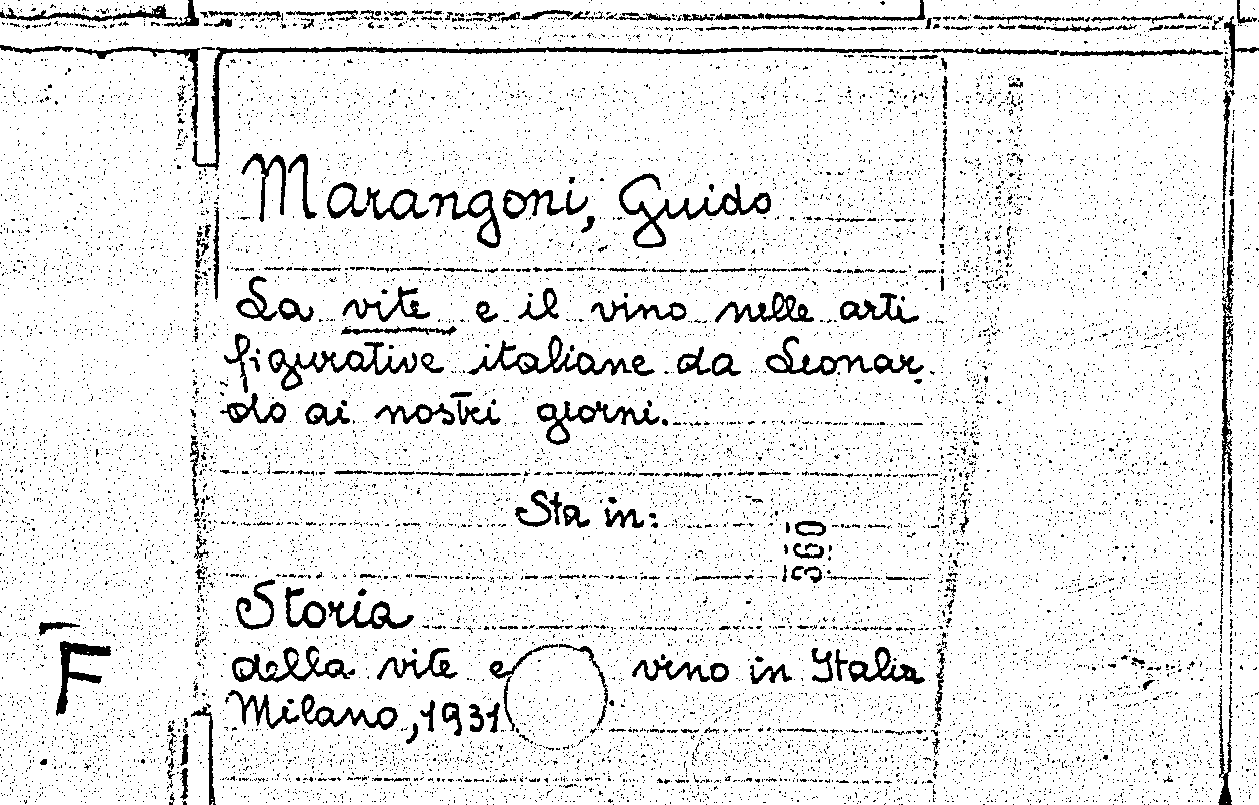 Marangoni, Guido
La vite e il vino nelle arti
figurative italiane da Leonar
do ai nostri giorni.
Sta in:
360
Storia
della vite e vino in Italia
Milano, 1931
F